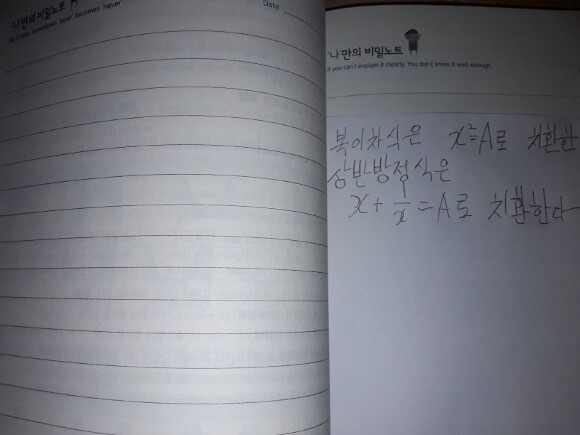 '나'만의 비밀노트
Date
'나'만의 비밀노트
If you can't explain it clearly, You don't know it well enough.
복이차식은 x²=A로 치환한
상반방정식은
x + 1/x = A로 치환한다